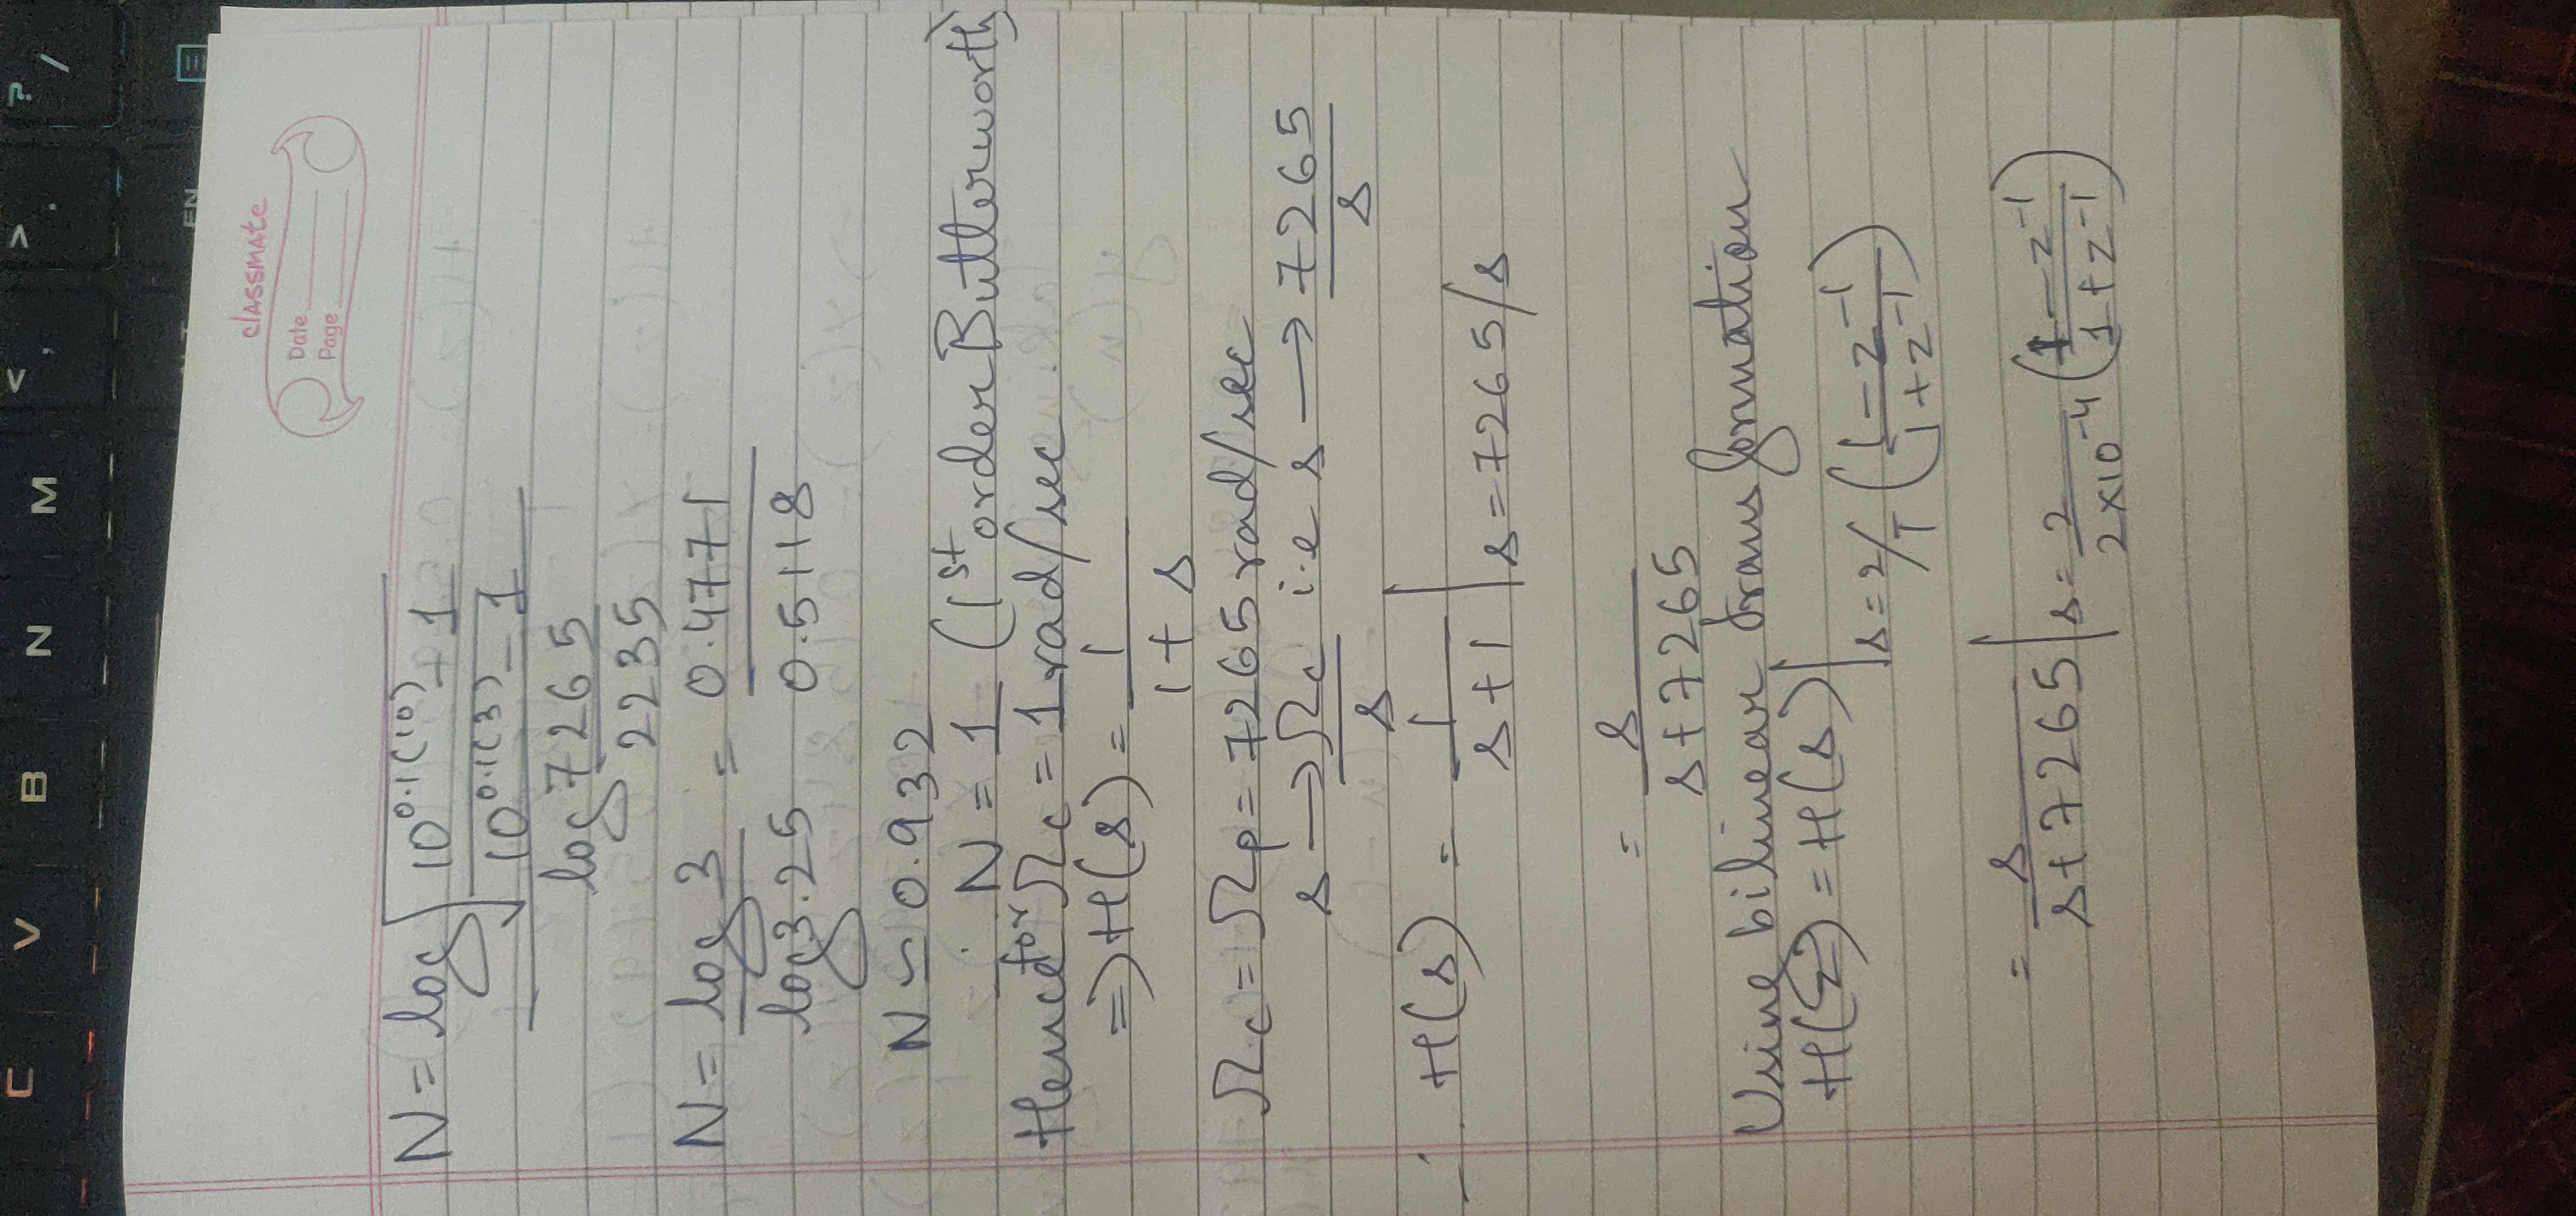 C V B N M < , > . ? /
EN
classmate
Date
Page
N = log √((10^0.1(10) - 1)/(10^0.1(3) - 1))
log 7265/2235
N = log 3 / log 3.25 = 0.4771 / 0.5118
N ≃ 0.932
∴ N = 1 (1st order Butterworth)
Hence for Ωc = 1 rad/sec.
⇒ H(s) = 1/(1+s)
Ωc = Ωp = 7265 rad/sec
s → Ωc/s i.e s → 7265/s
∴ H(s) = 1/(s+1) | s = 7265/s
= s/(s+7265)
Using bilinear transformation
H(z) = H(s) | s = 2/T ((1-z^-1)/(1+z^-1))
= s/(s+7265) | s = 2/(2×10^-4) ((1-z^-1)/(1+z^-1))